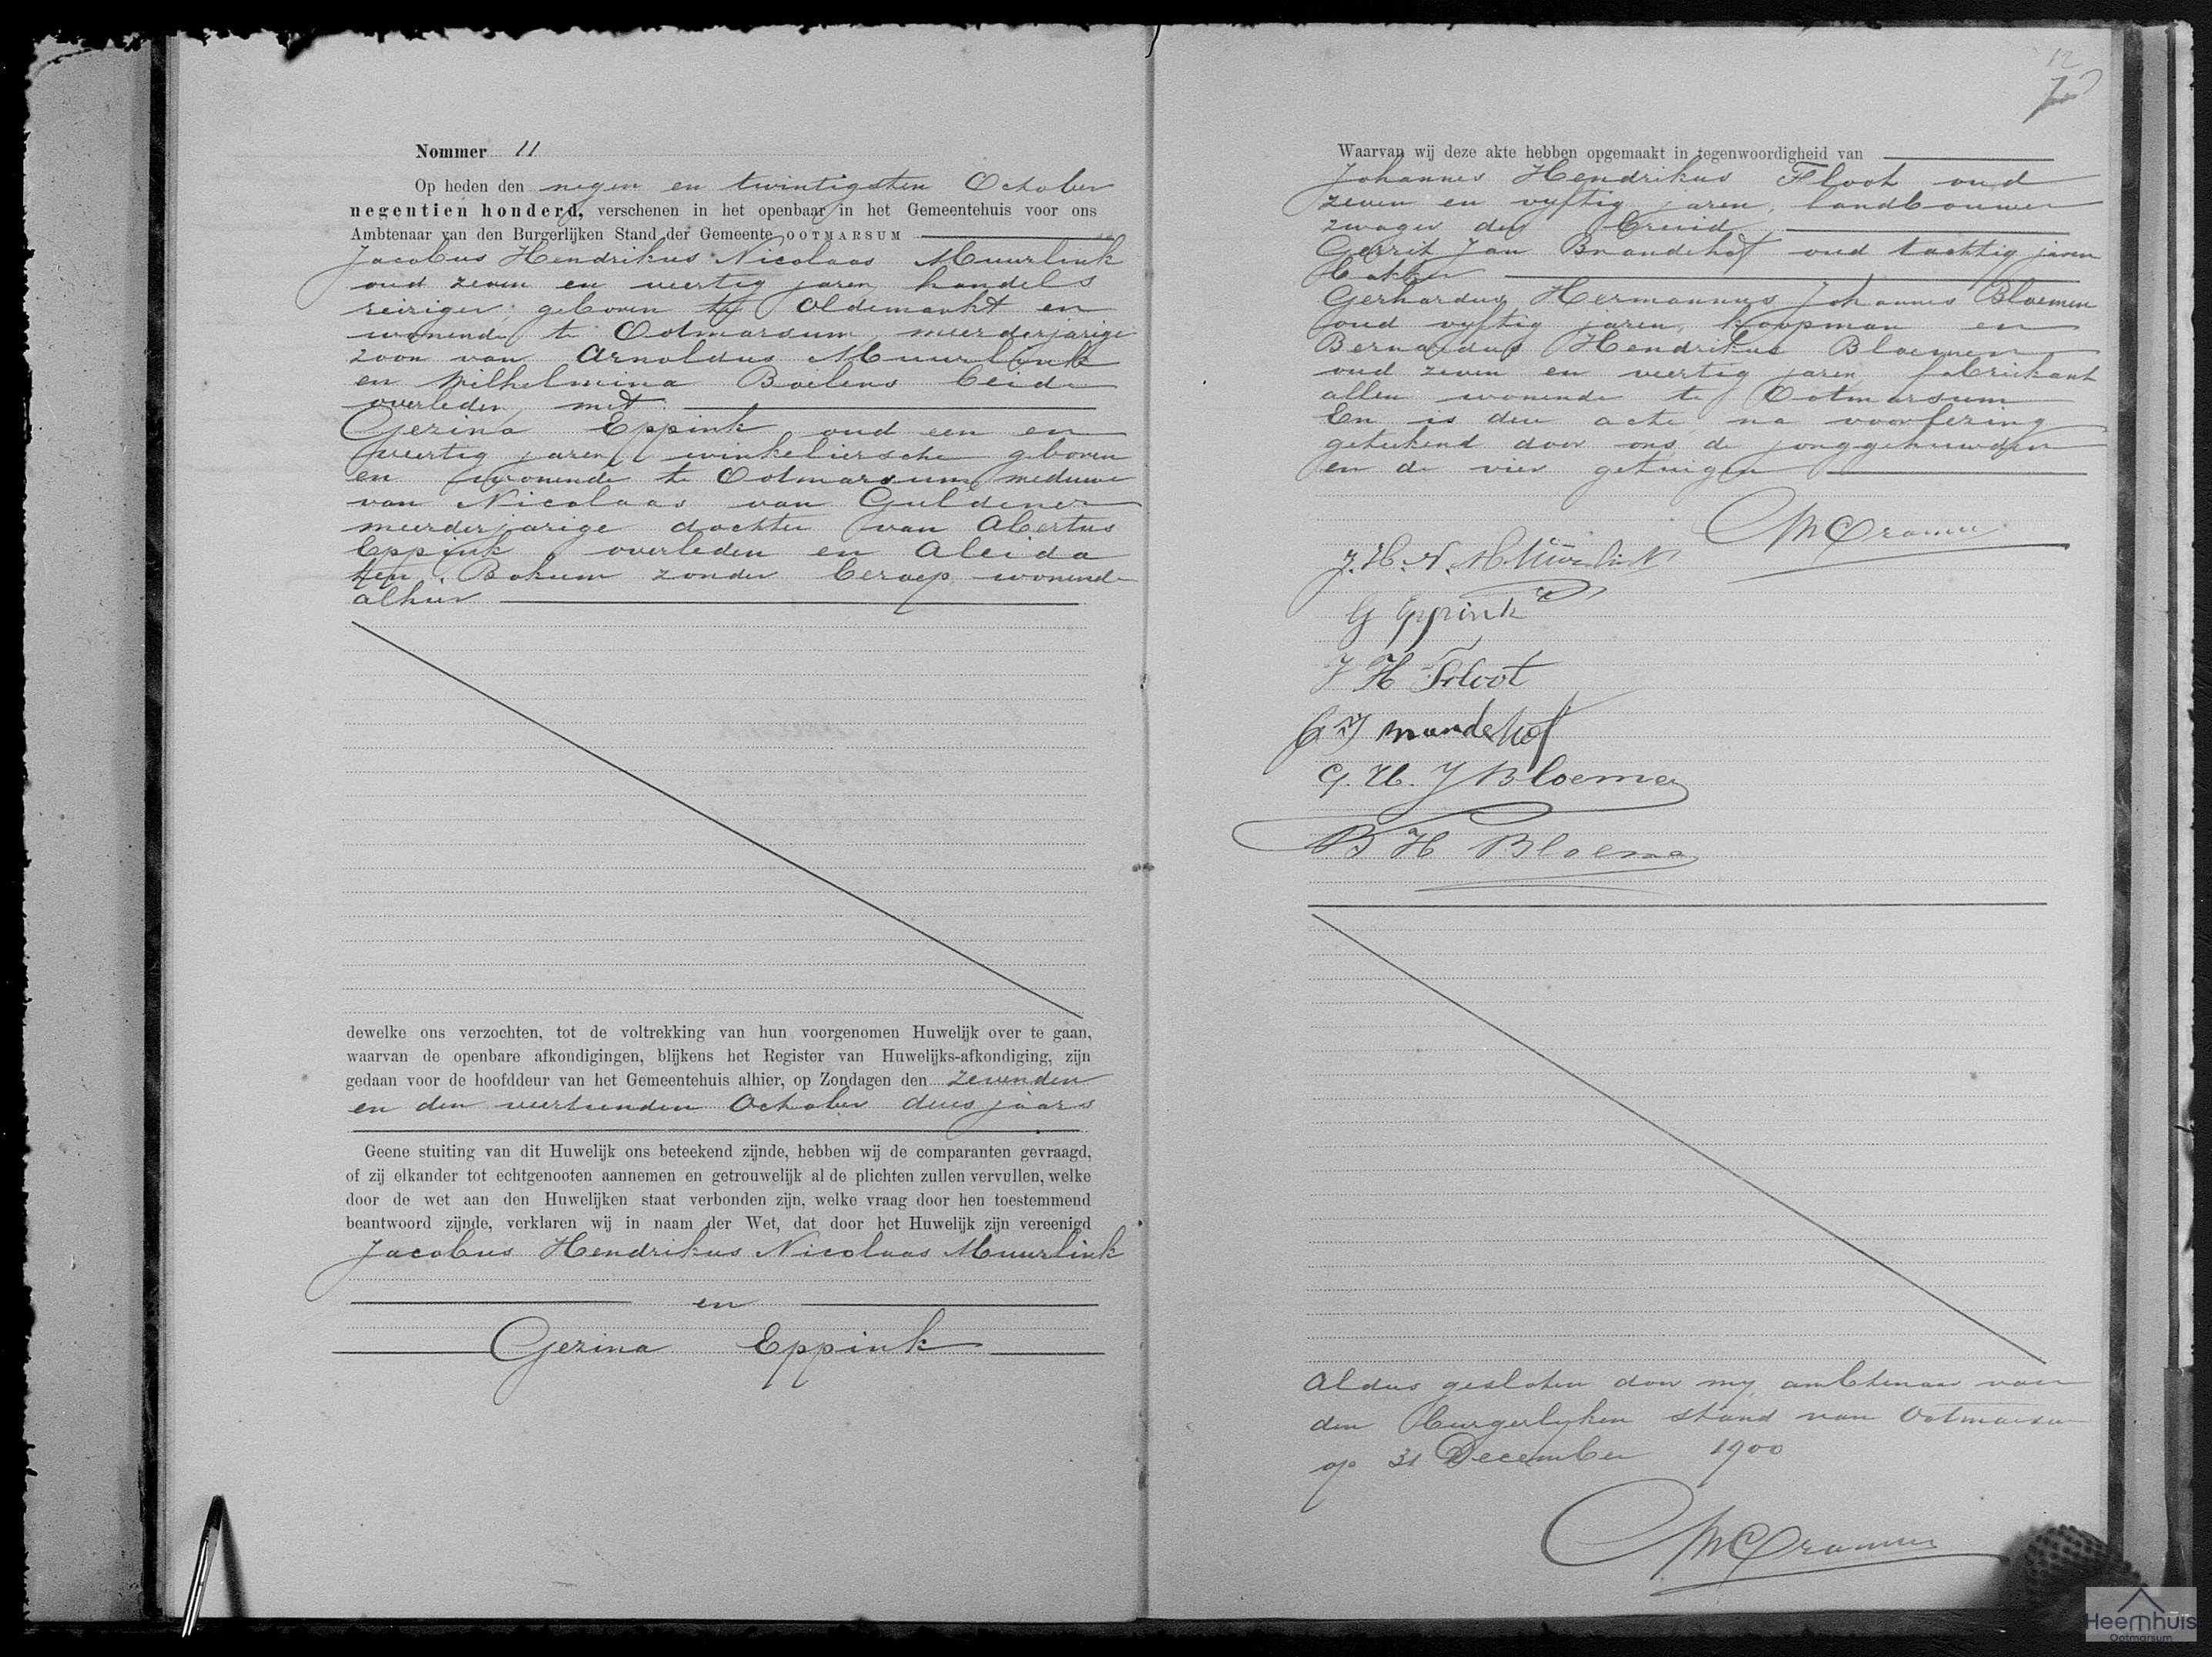 Nommer 11
Op heden den negen en twintigsten October
negentien honderd, verschenen in het openbaar in het Gemeentehuis voor ons
Ambtenaar van den Burgerlijken Stand der Gemeente OOTMARSUM
Jacobus Hendrikus Nicolaas Muurlink
oud zeven en veertig jaren, handels
reiziger, geboren te Oldemarkt en
wonende te Ootmarsum, meerderjarige
zoon van Arnoldus Muurlink
en Wilhelmina Boelens beide
overleden, met
Gezina Eppink oud een en
veertig jaren, winkeliersche geboren
en wonende te Ootmarsum, weduwe
van Nicolaas van Guldener
meerderjarige dochter van Albertus
Eppink, overleden en Aleida
ten Bokum zonder beroep, wonende
alhier
dewelke ons verzochten, tot de voltrekking van hun voorgenomen Huwelijk over te gaan,
waarvan de openbare afkondigingen, blijkens het Register van Huwelijks-afkondiging, zijn
gedaan voor de hoofddeur van het Gemeentehuis alhier, op Zondagen den zevenden
en den veertienden October dezes jaars
Geene stuiting van dit Huwelijk ons beteekend zijnde, hebben wij de comparanten gevraagd,
of zij elkander tot echtgenooten aannemen en getrouwelijk al de plichten zullen vervullen, welke
door de wet aan den Huwelijken staat verbonden zijn, welke vraag door hen toestemmend
beantwoord zijnde, verklaren wij in naam der Wet, dat door het Huwelijk zijn vereenigd
Jacobus Hendrikus Nicolaas Muurlink
en
Gezina Eppink
12
Waarvan wij deze akte hebben opgemaakt in tegenwoordigheid van
Johannes Hendrikus Floot oud
zeven en vyftig jaren, landbouwer
zwager der bruid
Gerrit Jan Brandehof oud tachtig jaren
bakker
Gerhardus Hermannus Johannes Bloemen
oud vyftig jaren, koopman en
Bernardus Hendrikus Bloemen
oud zeven en veertig jaren, fabriekant
allen wonende te Ootmarsum
En is deze acte na voorlezing
geteekend door ons, de jonggehuwden
en de vier getuigen
MCramer
J. H. N. Muurlink
G Eppink
J H Floot
G J Brandehof
G. H. J Bloemen
B H Bloemen
Aldus gesloten door my, ambtenaar van
den Burgerlyken stand van Ootmarsum
op 31 December 1900
MCramer
Heemhuis
Ootmarsum